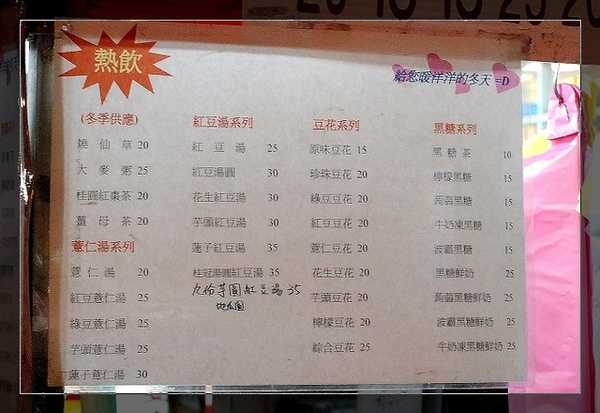 熱飲
給您暖洋洋的冬天 =D
(冬季供應)
燒仙草 20
大麥粥 25
桂圓紅棗茶 20
薑母茶 20
薏仁湯系列
薏仁湯 20
紅豆薏仁湯 25
綠豆薏仁湯 25
芋頭薏仁湯 25
蓮子薏仁湯 30
紅豆湯系列
紅豆湯 25
紅豆湯圓 30
花生紅豆湯 30
芋頭紅豆湯 30
蓮子紅豆湯 35
桂冠湯圓紅豆湯 35
九份芋圓紅豆湯 35
地瓜圓
豆花系列
原味豆花 15
珍珠豆花 20
綠豆豆花 20
紅豆豆花 20
薏仁豆花 20
花生豆花 20
芋頭豆花 20
檸檬豆花 20
綜合豆花 25
黑糖系列
黑糖茶 10
檸檬黑糖 15
蒟蒻黑糖 15
牛奶凍黑糖 15
波霸黑糖 15
黑糖鮮奶 25
蒟蒻黑糖鮮奶 25
波霸黑糖鮮奶 25
牛奶凍黑糖鮮奶 25